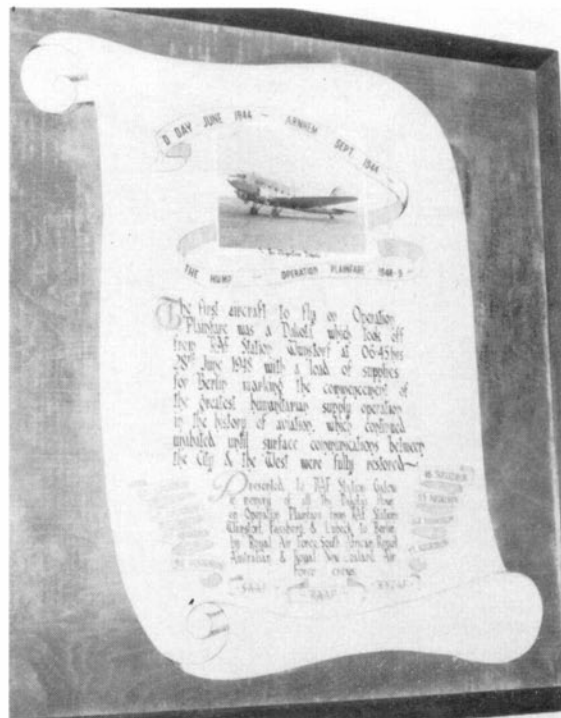 D DAY JUNE 1944 — ARNHEM SEPT. 1944 —
THE HUMP — OPERATION PLAINFARE 1948-9
The first aircraft to fly on Operation
Plainfare was a Dakota which took off
from RAF Station Wunstorf at 06·45hrs
28th June 1948 with a load of supplies
for Berlin marking the commencement of
the greatest humanitarian supply operation
in the history of aviation, which continued
unabated until surface communications between
the City & the West were fully restored~
Presented to RAF Station Gatow
in memory of all the Dakotas flown
on Operation Plainfare from RAF Stations
Wunstorf, Fassberg & Lubeck to Berlin
by Royal Air Force South African Royal
Australian & Royal New Zealand Air
Force crews
SAAF RAAF RNZAF